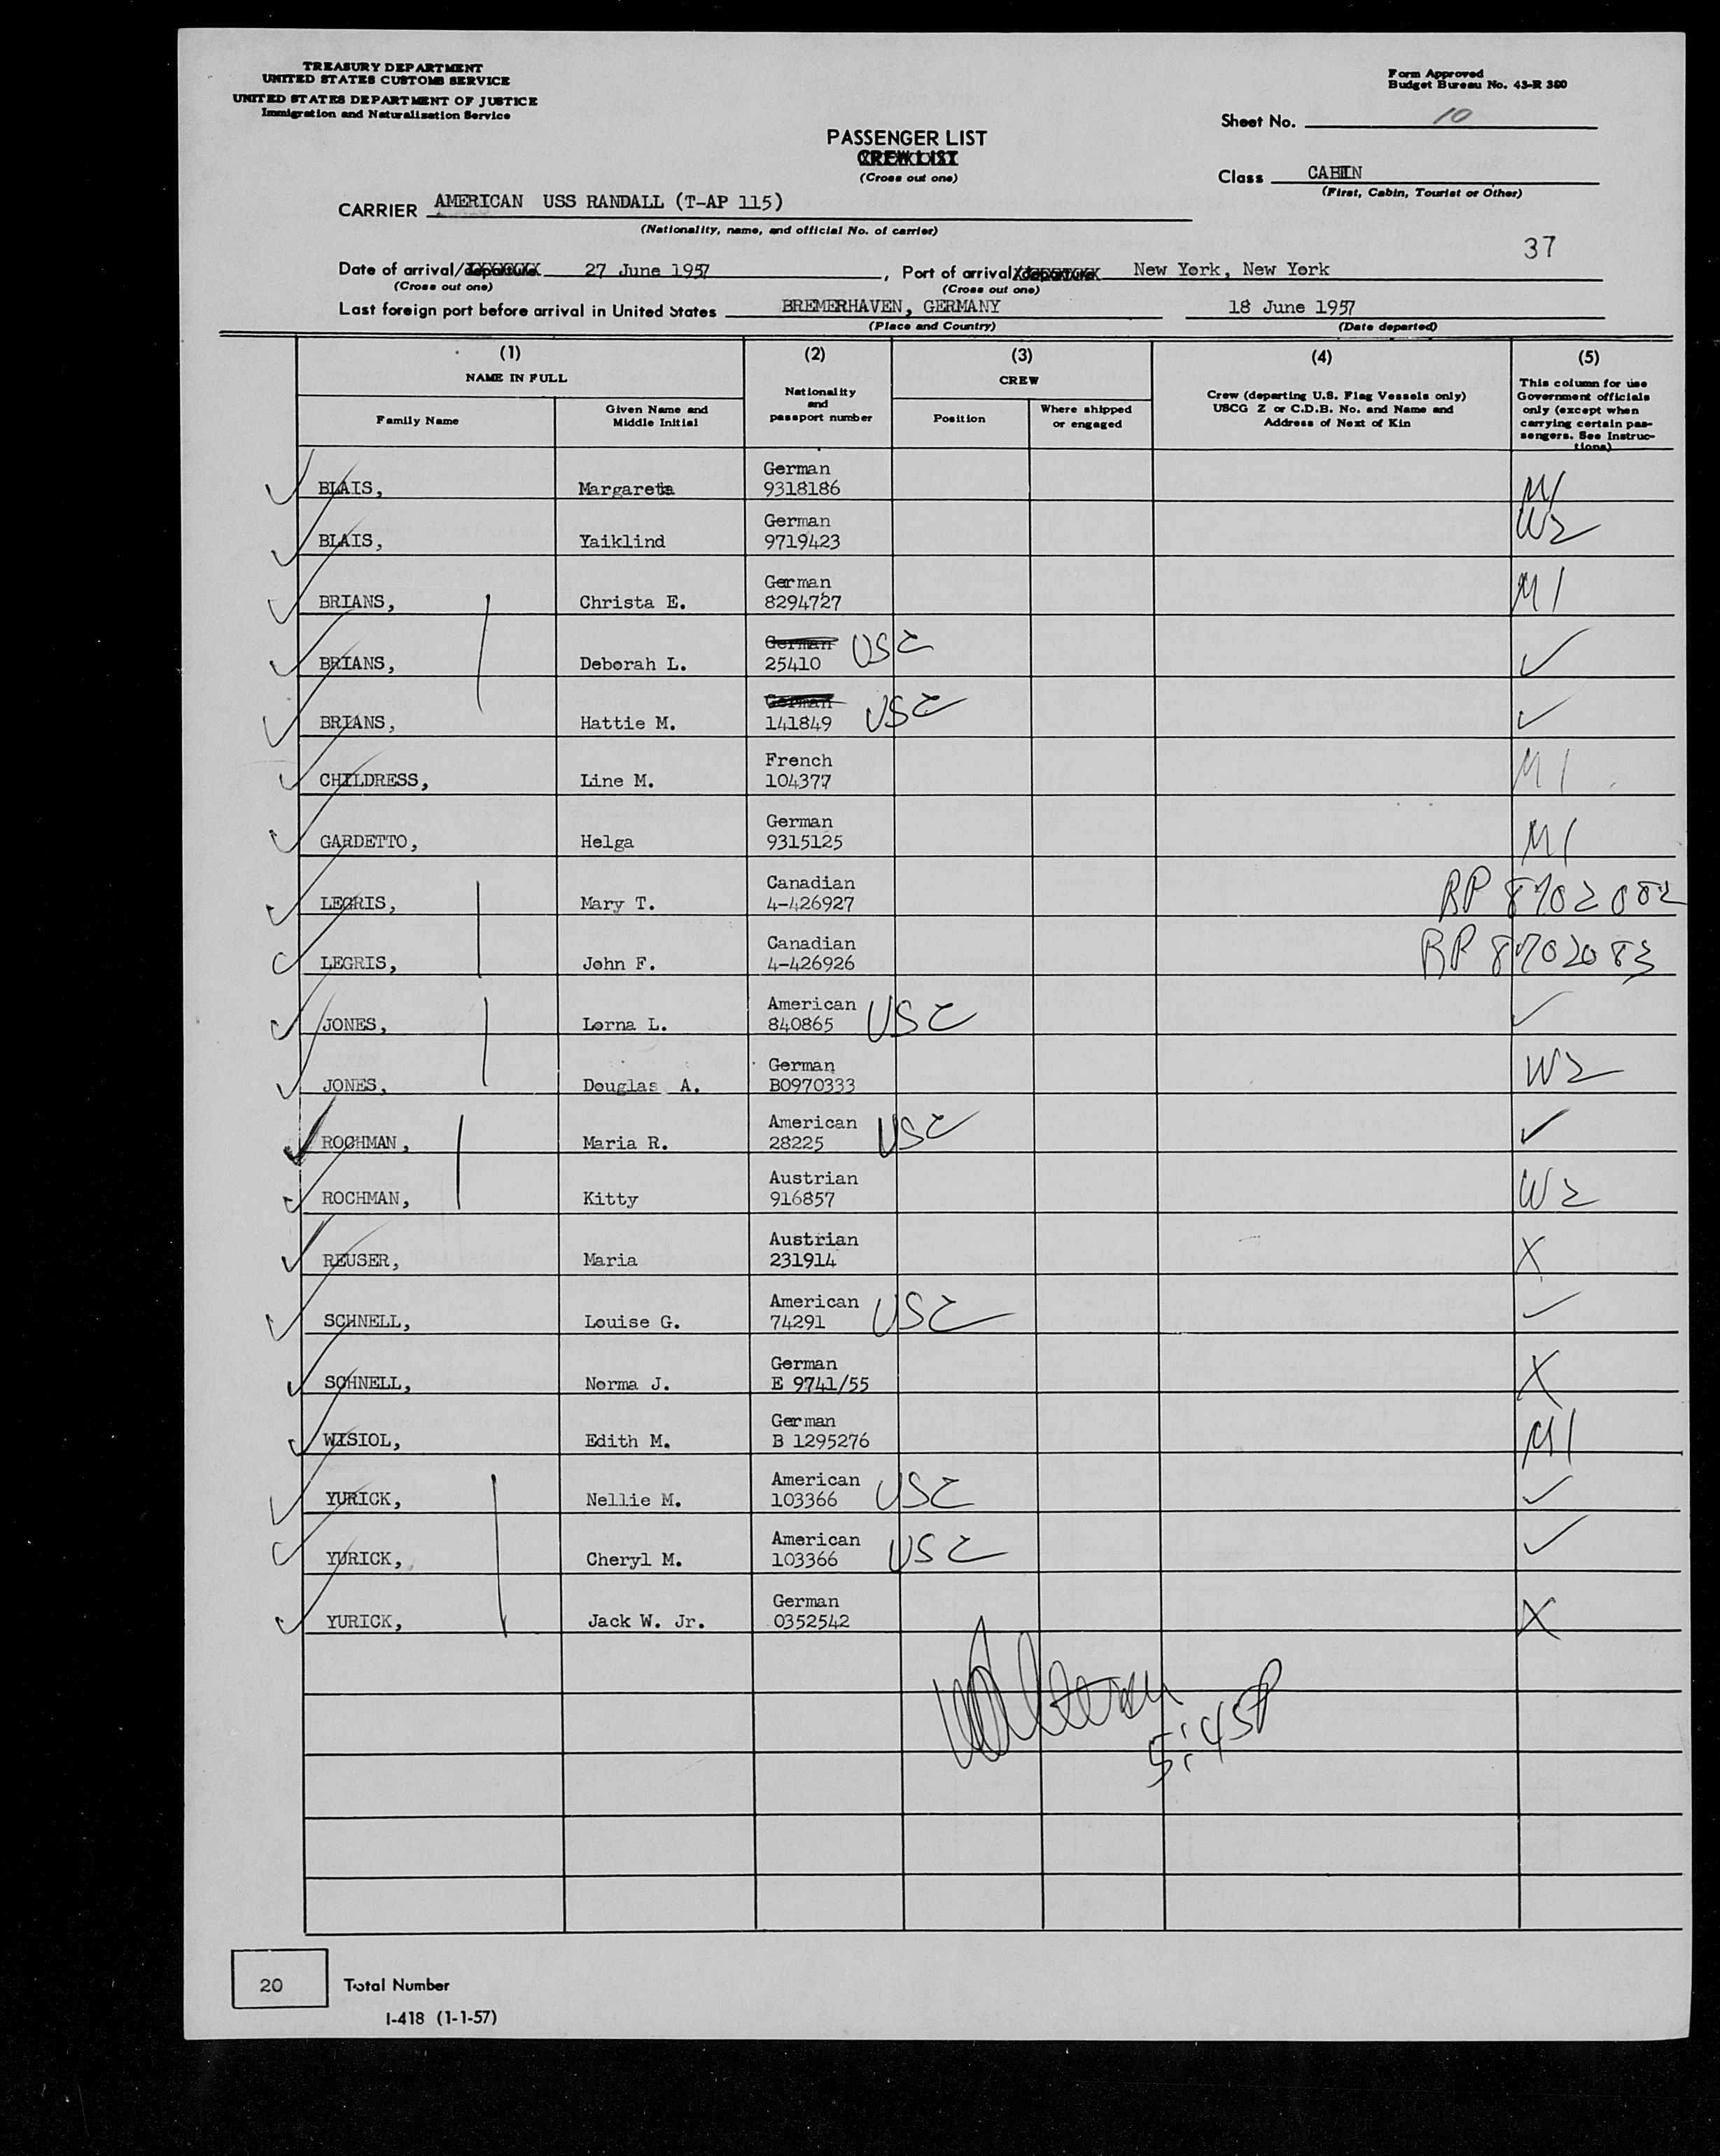 TREASURY DEPARTMENT
UNITED STATES CUSTOMS SERVICE
UNITED STATES DEPARTMENT OF JUSTICE
Immigration and Naturalization Service
Form Approved
Budget Bureau No. 43-R 380
Sheet No. 10
PASSENGER LIST
CREW LIST
(Cross out one)
Class CABIN
(First, Cabin, Tourist or Other)
CARRIER AMERICAN USS RANDALL (T-AP 115)
(Nationality, name, and official No. of carrier)
37
Date of arrival/departure 27 June 1957, Port of arrival/departure New York, New York
(Cross out one) (Cross out one)
Last foreign port before arrival in United States BREMERHAVEN, GERMANY 18 June 1957
(Place and Country) (Date departed)
(1) (2) (3) (4) (5)
NAME IN FULL
Family Name
Given Name and Middle Initial
Nationality and passport number
CREW
Position
Where shipped or engaged
Crew (departing U.S. Flag Vessels only)
USCG Z or C.D.B. No. and Name and
Address of Next of Kin
This column for use
Government officials
only (except when
carrying certain pas-
sengers. See Instruc-
tions)
German
BLAIS, Margareta 9318186 M1
German
BLAIS, Yaiklind 9719423 W2
German
BRIANS, Christa E. 8294727 M1
German USC
BRIANS, Deborah L. 25410 ✓
German USC
BRIANS, Hattie M. 141849 ✓
French
CHILDRESS, Line M. 104377 M1
German
GARDETTO, Helga 9315125 M1
Canadian
LEGRIS, Mary T. 4-426927 RP 8702082
Canadian
LEGRIS, John F. 4-426926 RP 8702083
American USC
JONES, Lorna L. 840865 ✓
German
JONES, Douglas A. B0970333 W2
American USC
ROCHMAN, Maria R. 28225 ✓
Austrian
ROCHMAN, Kitty 916857 W2
Austrian
REUSER, Maria 231914 X
American USC
SCHNELL, Louise G. 74291 ✓
German
SCHNELL, Norma J. E 9741/55 X
German
WISIOL, Edith M. B 1295276 M1
American USC
YURICK, Nellie M. 103366 ✓
American USC
YURICK, Cheryl M. 103366 ✓
German
YURICK, Jack W. Jr. 0352542 X
5:45P
20 Total Number
I-418 (1-1-57)